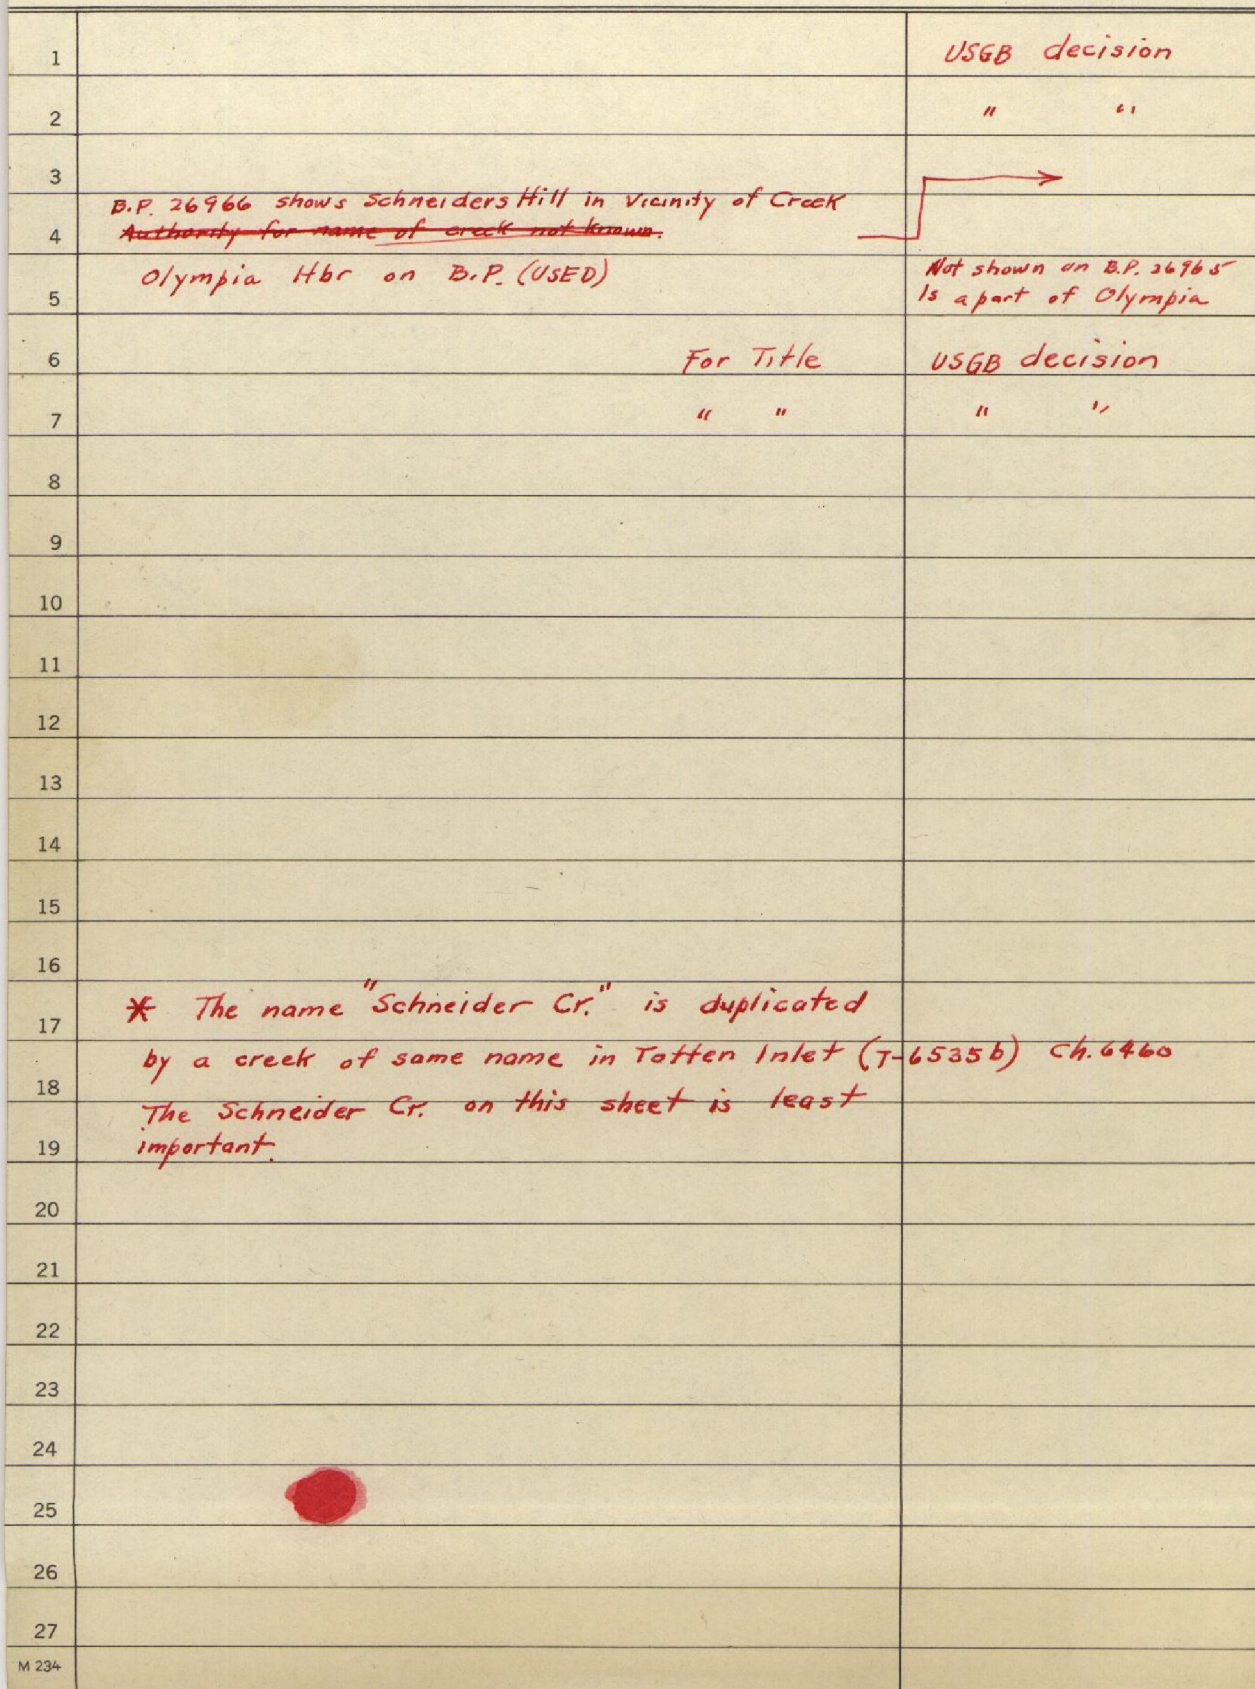 1 USGB decision
2 " "
3
B.P. 26966 shows Schneiders Hill in Vicinity of Creek
4 Authority for name of creek not known.
Olympia Hbr on B.P. (USED) Not shown on B.P. 26965
5 Is a part of Olympia
6 For Title USGB decision
7 " " " "
8
9
10
11
12
13
14
15
16
* The name "Schneider Cr." is duplicated
17
by a creek of same name in Totten Inlet (T-6535b) Ch. 6460
18
The Schneider Cr. on this sheet is least
19 important.
20
21
22
23
24
25
26
27
M 234